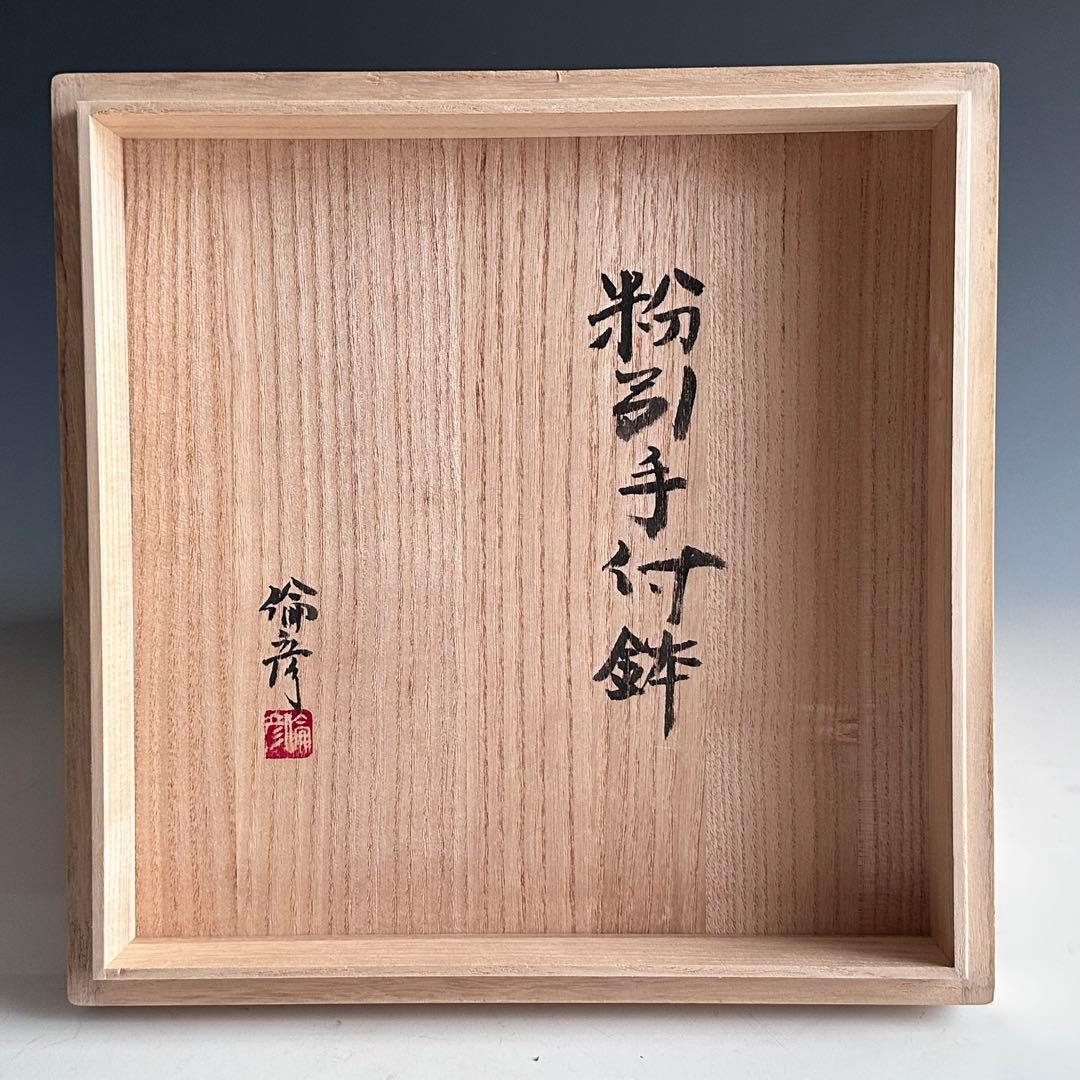 粉引手付鉢
倫彦
倫彦